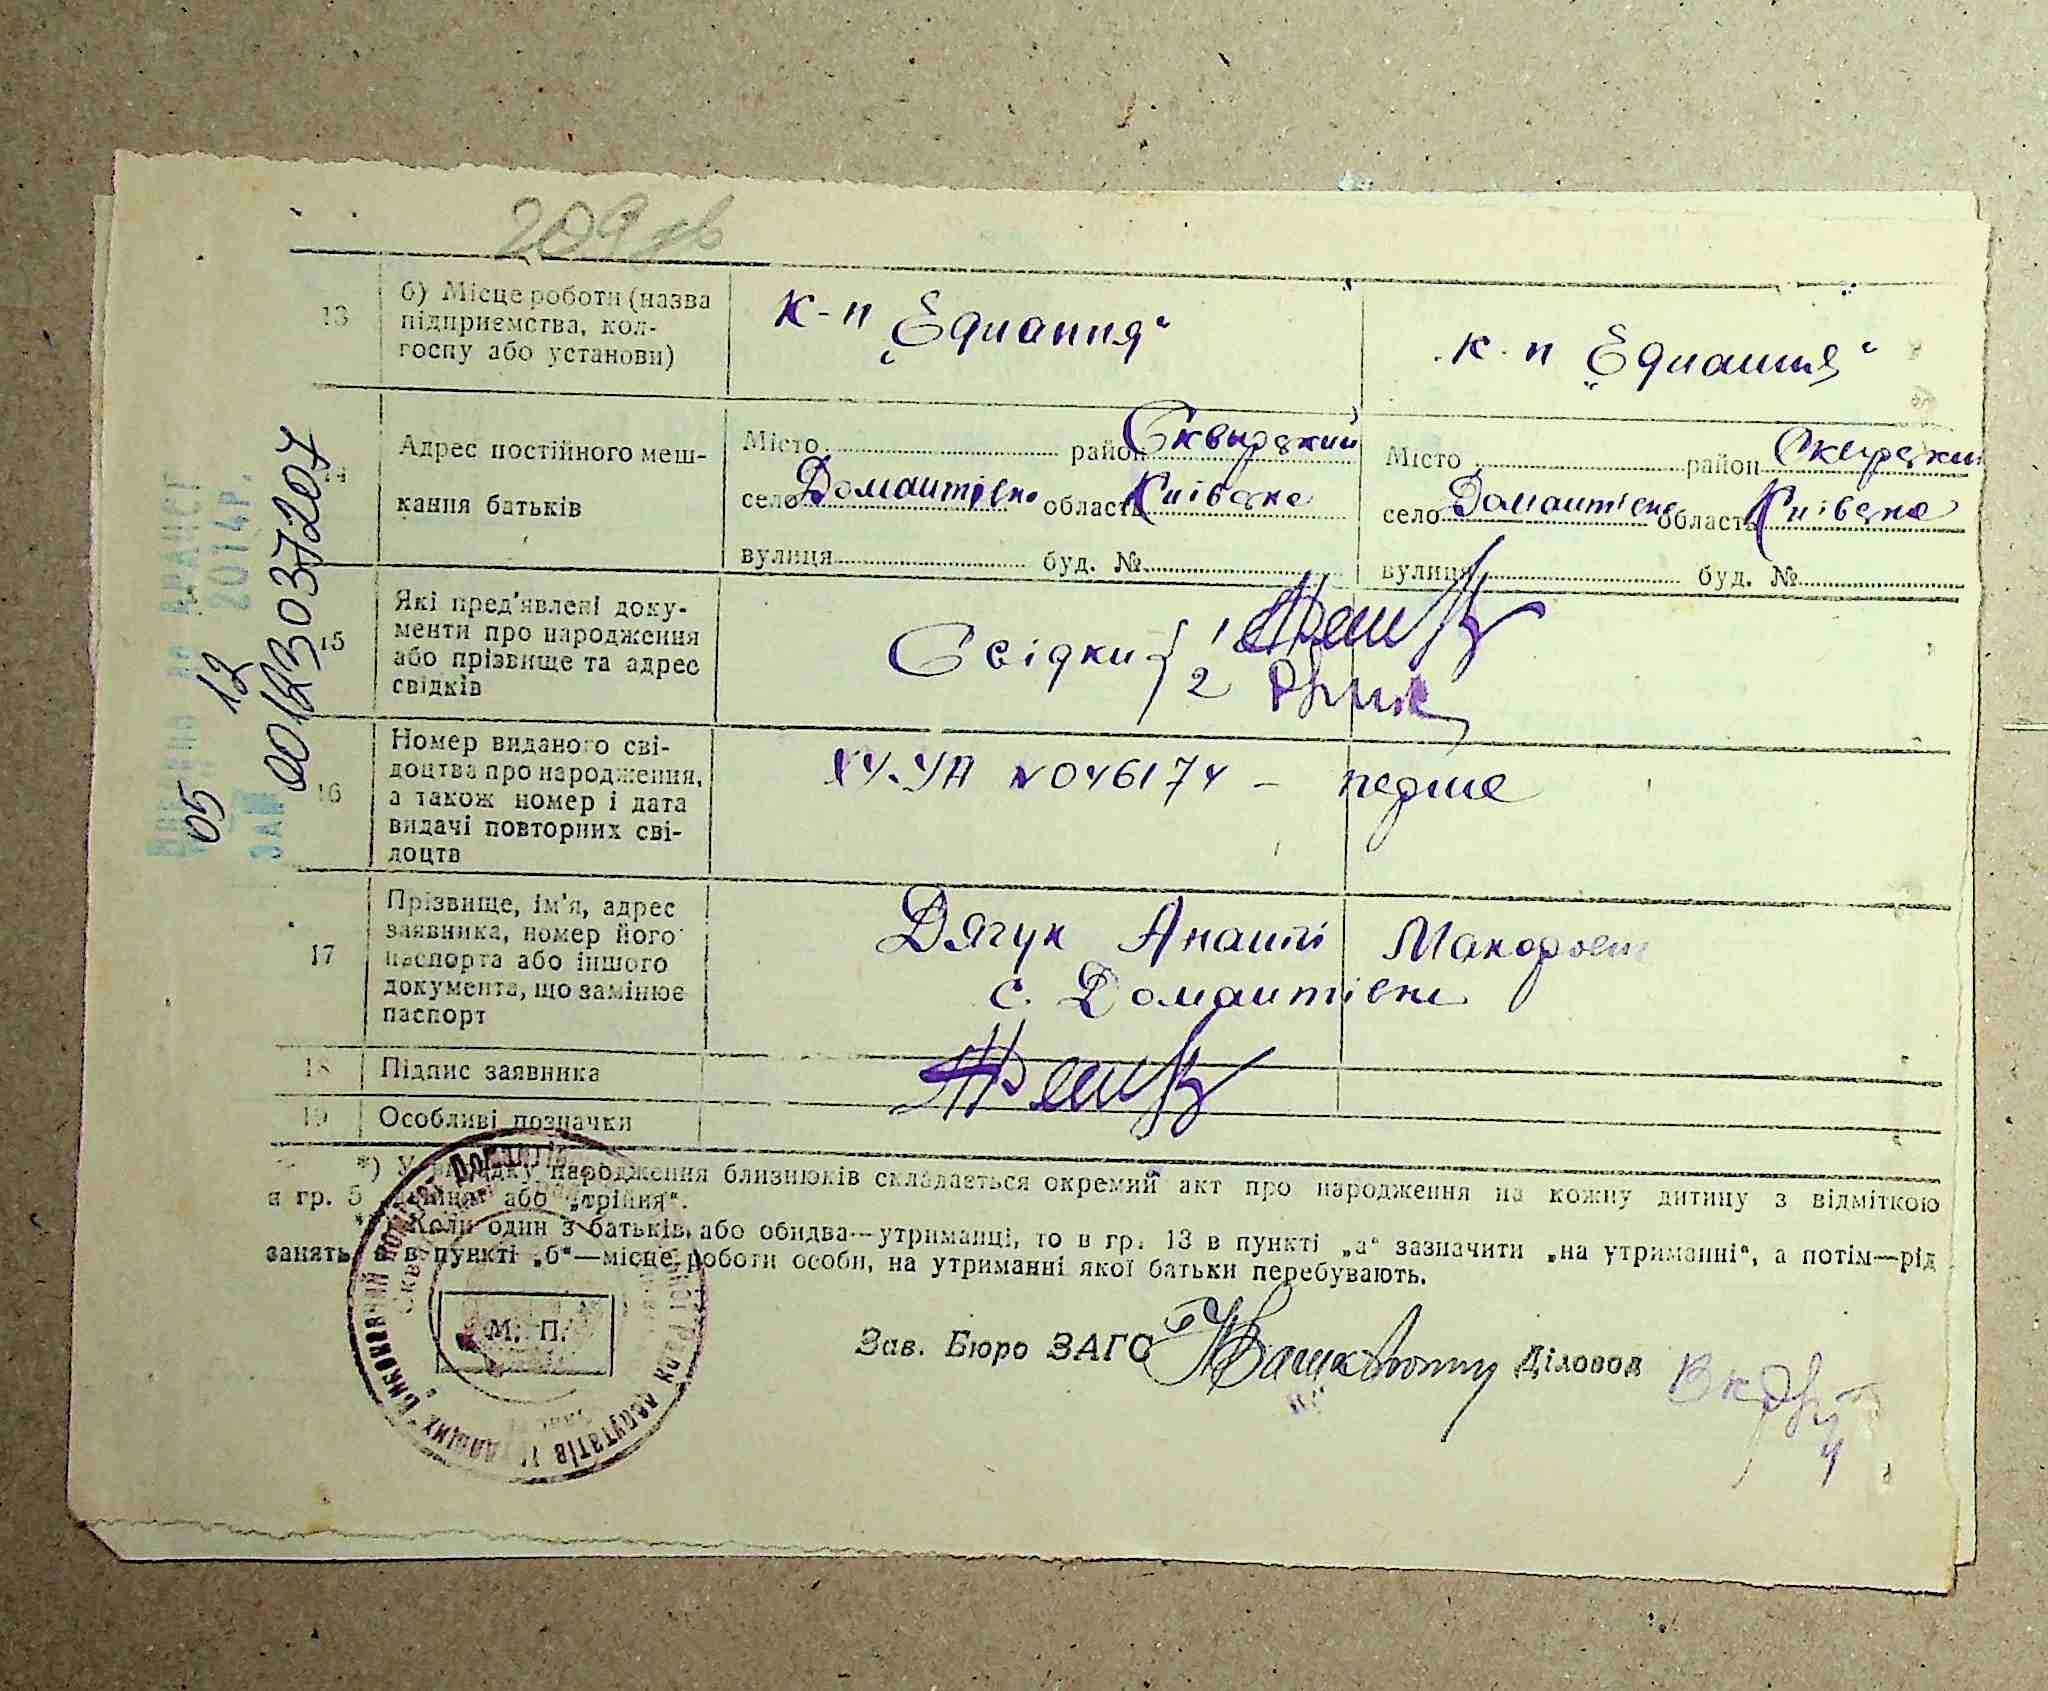 209 зв
13
б) Місце роботи (назва
підприємства, кол-
госпу або установи)
к-п „Єднання“
к-п „Єднання“
14
Адрес постійного меш-
кання батьків
Місто район Сквырский
село Домантівка область Київська
вулиця буд. №
Місто район Сквирский
село Домантівка область Київська
вулиця буд. №
15
Які пред'явлені доку-
менти про народження
або прізвище та адрес
свідків
Свідки { 1
2
16
Номер виданого сві-
доцтва про народження,
а також номер і дата
видачі повторних сві-
доцтв
ХУ-УА № 046174 –
17
Прізвище, ім'я, адрес
заявника, номер його
паспорта або іншого
документа, що замінює
паспорт
Дячук
с. Домантівка
18
Підпис заявника
19
Особливі позначки
*) У випадку народження близнюків складається окремий акт про народження на кожну дитину з відміткою
в гр. 5 „двійня“ або „трійня“.
**) Коли один з батьків, або обидва—утриманці, то в гр. 13 в пункті „а“ зазначити „на утриманні“, а потім—рід
занять, а в пункті „б“—місце роботи особи, на утриманні якої батьки перебувають.
М. П.
Зав. Бюро ЗАГС
Діловод
Виконавчий комітет
депутатів трудящих
05 12 2014р.
00123037207